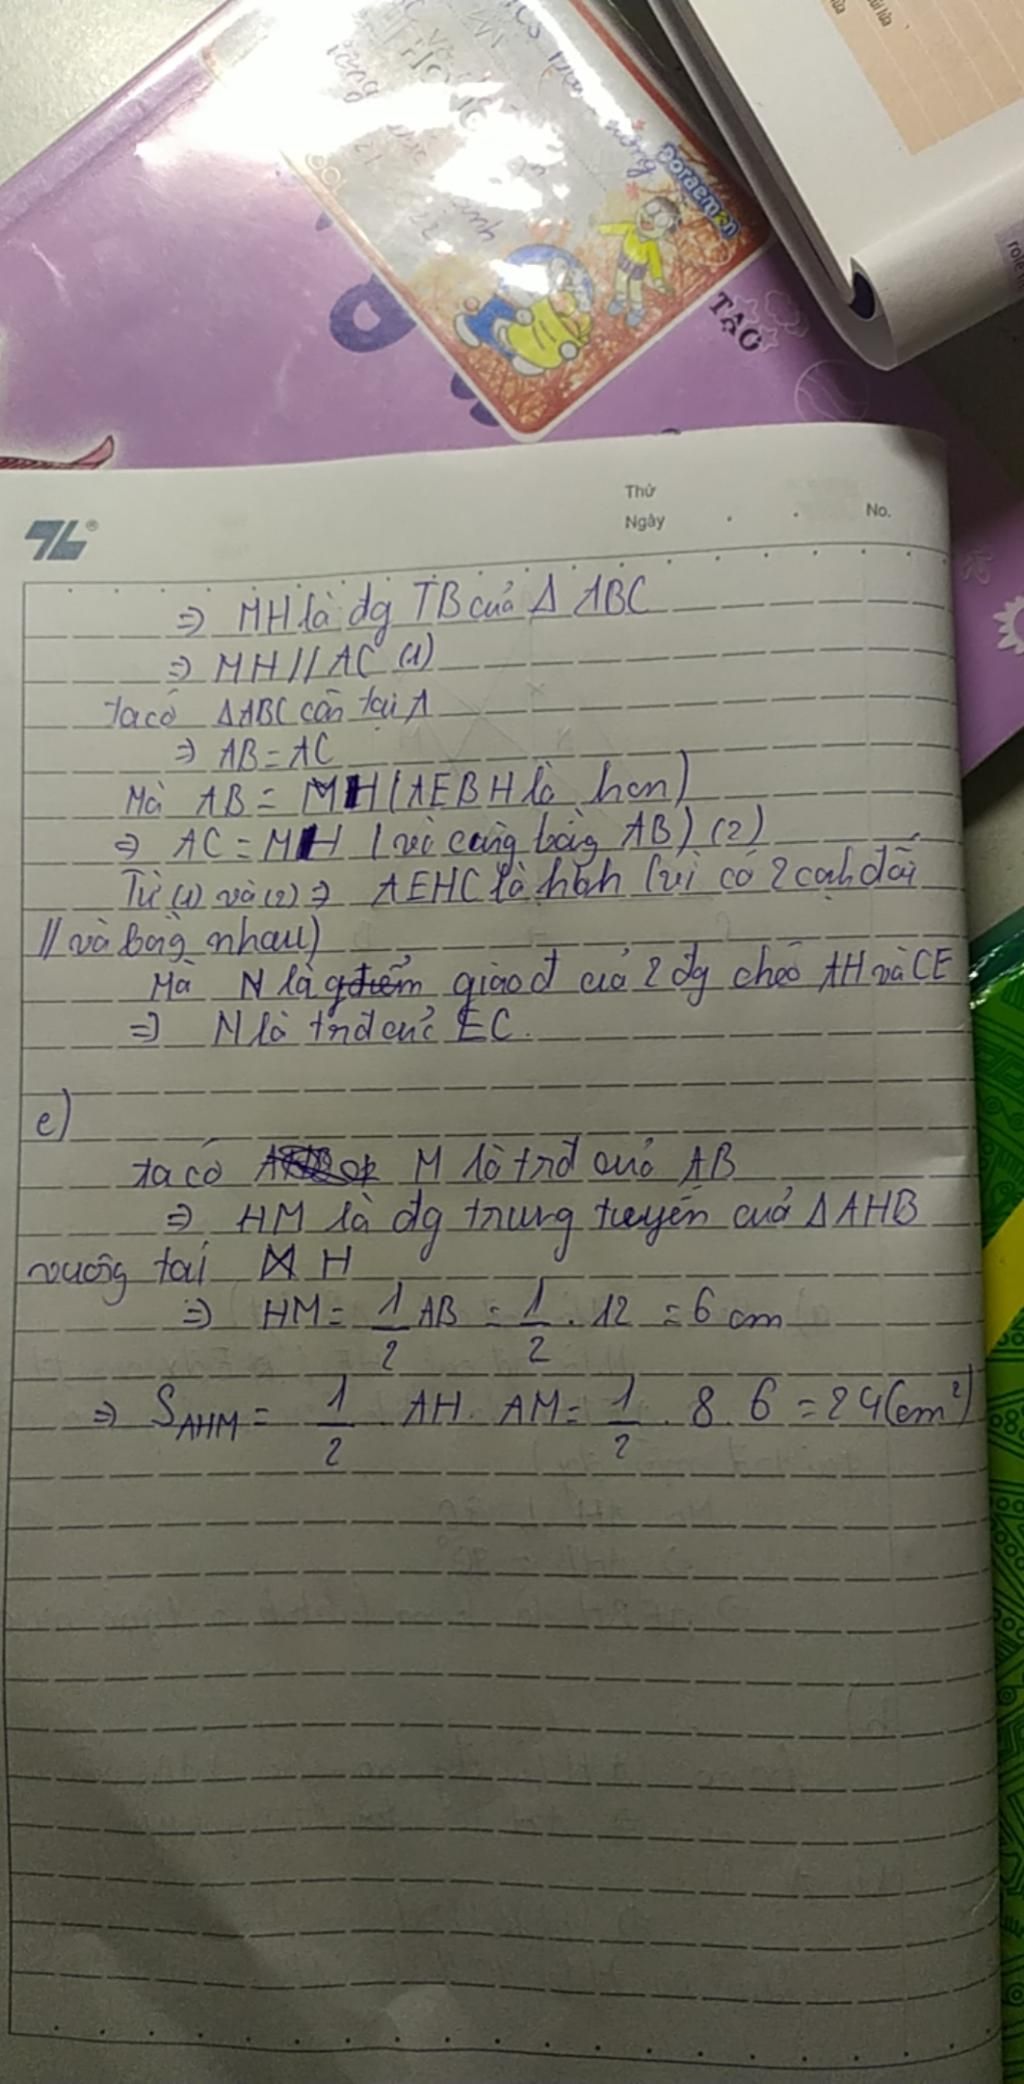 DORAEMON
TẠO
Thứ
Ngày
No.
⇒ MH là đg TB của Δ ABC
⇒ MH // AC (1)
ta có ΔABC cân tại A
⇒ AB = AC
Mà AB = MH (AEBH là hcn)
⇒ AC = MH (vì cùng bằng AB) (2)
Từ (1) và (2) ⇒ AEHC là hbh (vì có 2 cạh đối
// và bằg nhau)
Mà N là giao đ của 2 đg chéo AH và CE
⇒ N là trđ của EC.
e)
ta có M là trđ của AB
⇒ HM là đg trung tuyến của Δ AHB
vuông tại H
⇒ HM = 1/2 AB = 1/2 . 12 = 6 cm
⇒ S_AHM = 1/2 AH . AM = 1/2 . 8 . 6 = 24 (cm²)